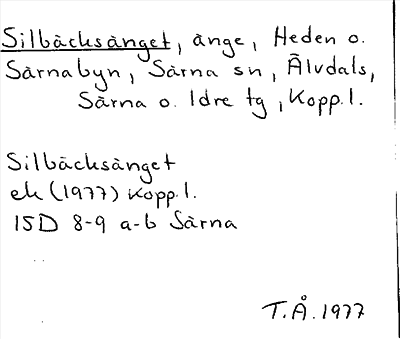 Silbäcksänget, änge, Heden o.
Särnabyn, Särna sn, Älvdals,
Särna o. Idre tg, Kopp.l.
Silbäcksänget
ek (1977) Kopp.l.
15D 8-9 a-b Särna
T.Å. 1977